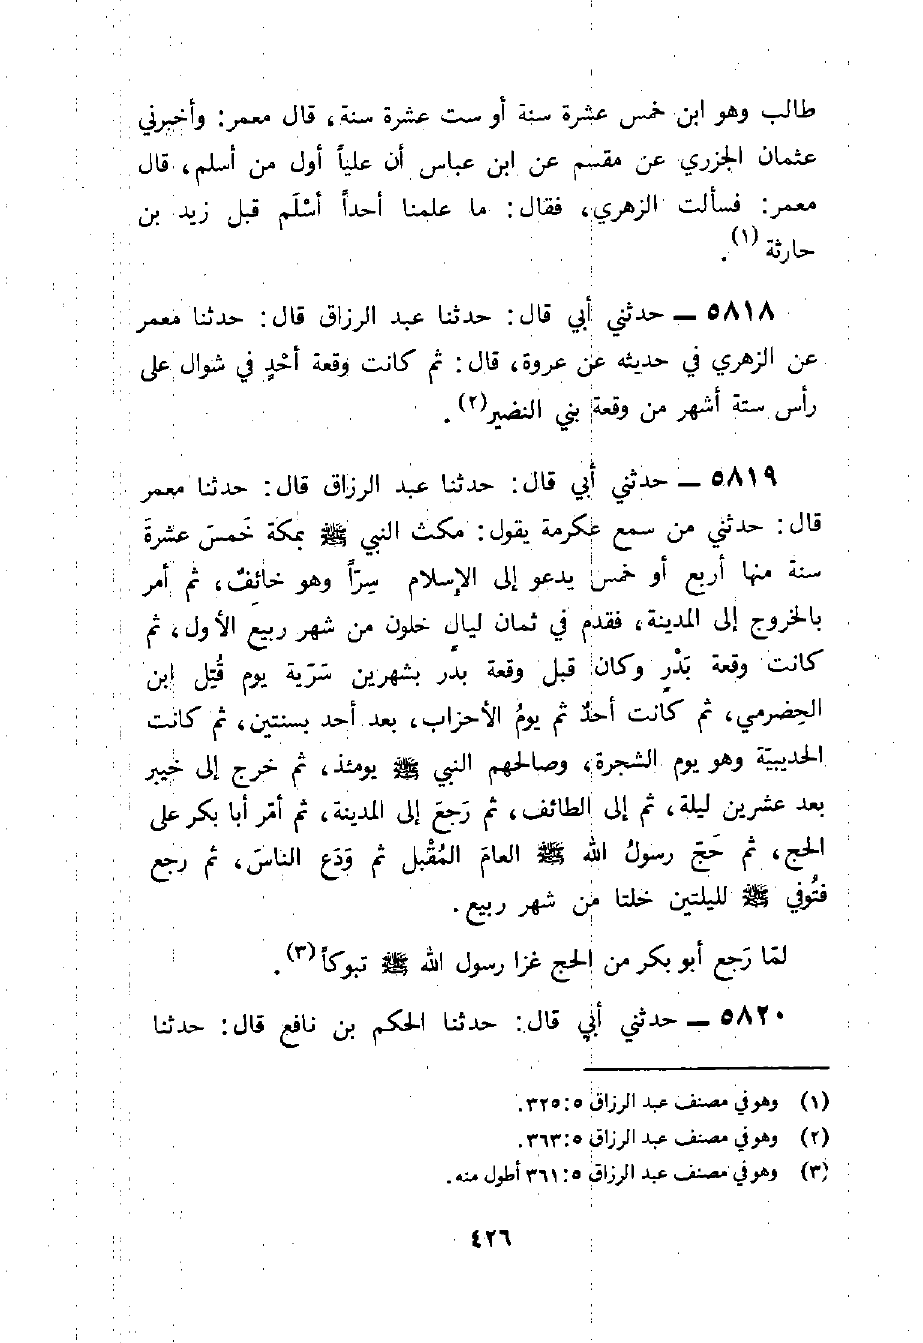 طالب وهو ابن خمس عشرة سنة أو ست عشرة سنة، قال معمر: وأخبرني
عثمان الجزري عن مقسم عن ابن عباس أن علياً أول من أسلم، قال
معمر: فسألت الزهري، فقال: ما علمنا أحداً أسْلَم قبل زيد بن
حارثة (١).
٥٨١٨ ــ حدثني أبي قال: حدثنا عبد الرزاق قال: حدثنا معمر
عن الزهري في حديثه عن عروة، قال: ثم كانت وقعة أحُدٍ في شوال على
رأس ستة أشهر من وقعة بني النضير(٢).
٥٨١٩ ــ حدثني أبي قال: حدثنا عبد الرزاق قال: حدثنا معمر
قال: حدثني من سمع عكرمة يقول: مكث النبي ﷺ بمكة خَمسَ عشرةَ
سنة منها أربع أو خمس يدعو إلى الإسلام سِرّاً وهو خائفٌ، ثم أمر
بالخروج إلى المدينة، فقدم في ثمان ليالٍ خلون من شهر ربيع الأول، ثم
كانت وقعة بَدْرٍ وكان قبل وقعة بدر بشهرين سَرّية يوم قُتِل ابن
الحِضرمي، ثم كانت أحدٌ ثم يومُ الأحزاب، بعد أحد بسنتين، ثم كانت
الحديبيّة وهو يوم الشجرة، وصالحهم النبي ﷺ يومئذ، ثم خرج إلى خيبر
بعد عشرين ليلة، ثم إلى الطائف، ثم رَجعَ إلى المدينة، ثم أمّر أبا بكر على
الحج، ثم حَجّ رسولُ الله ﷺ العامَ المُقْبل ثم وَدَع الناسَ، ثم رجع
فتُوفي ﷺ لليلتين خلتا من شهر ربيع.
لمّا رَجع أبو بكر من الحج غزا رسول الله ﷺ تبوكاً(٣).
٥٨٢٠ ــ حدثني أبي قال: حدثنا الحكم بن نافع قال: حدثنا
(١) وهو في مصنف عبد الرزاق ٥:٣٢٥.
(٢) وهو في مصنف عبد الرزاق ٥:٣٦٣.
(٣) وهو في مصنف عبد الرزاق ٥:٣٦١ أطول منه.
٤٢٦